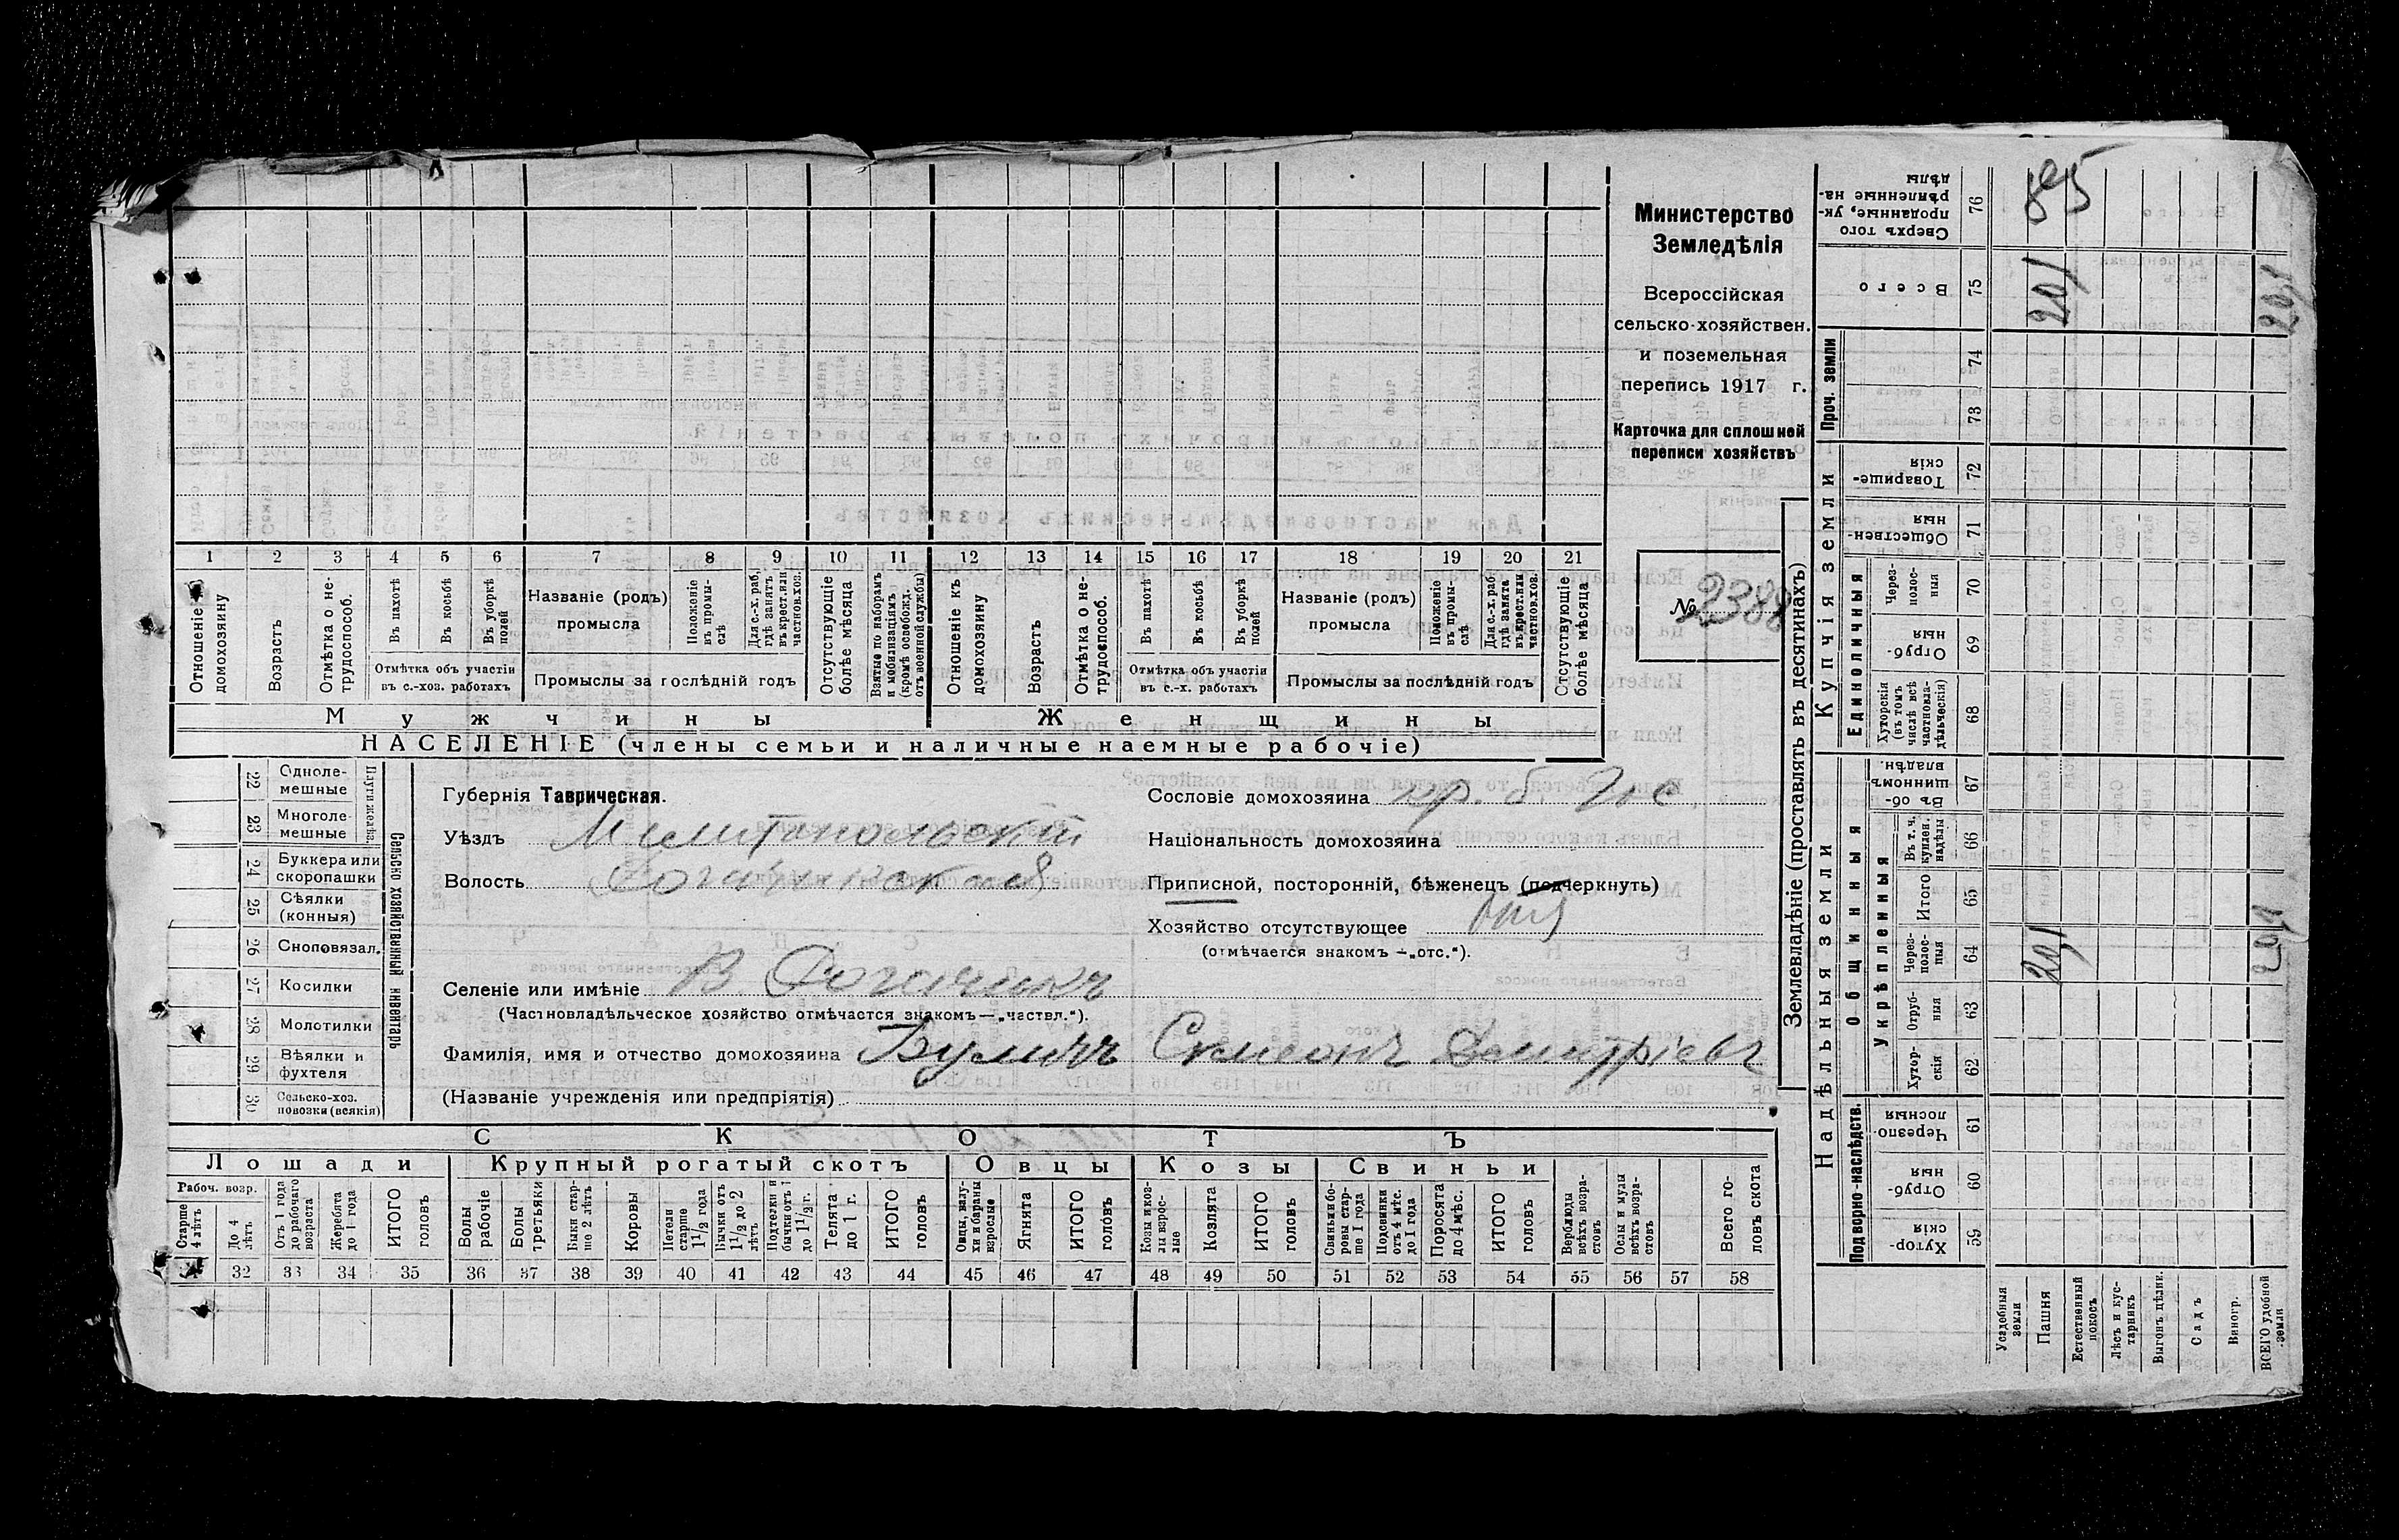 Министерство
Земледѣлія
Всероссійская
сельско-хозяйствен.
и поземельная
перепись 1917 г.
Карточка для сплошной
переписи хозяйствъ
№ 2388
1 2 3 4 5 6 7 8 9 10 11 12 13 14 15 16 17 18 19 20 21
Отношеніе къ домохозяину
Возрастъ
Отмѣтка о не-трудоспособ.
Въ пахотѣ
Въ косьбѣ
Въ уборкѣ полей
Отмѣтка объ участіи въ с.-хоз. работахъ
Названіе (родъ) промысла
Положеніе въ промы-слѣ
Для с.-х. раб, гдѣ занятъ въ крест. или частнов. хоз.
Промыслы за послѣдній годъ
Отсутствующіе болѣе мѣсяца
Взятые по наборамъ и мобилизаціямъ (кромѣ освобожд. отъ военной службы)
Отношеніе къ домохозяину
Возрастъ
Отмѣтка о не-трудоспособ.
Въ пахотѣ
Въ косьбѣ
Въ уборкѣ полей
Отмѣтка объ участіи въ с.-х. работахъ
Названіе (родъ) промысла
Положеніе въ промы-слѣ
Для с.-х. раб. гдѣ занята въ крест. или частнов. хоз.
Промыслы за послѣдній годъ
Отсутствующіе болѣе мѣсяца
Мужчины
Женщины
НАСЕЛЕНІЕ (члены семьи и наличные наемные рабочіе)
22 Одноле-мешные
23 Многоле-мешные
Плуги желѣз.
24 Буккера или скоропашки
25 Сѣялки (конныя)
26 Сноповязал.
27 Косилки
28 Молотилки
29 Вѣялки и фухтеля
30 Сельско-хоз. повозки (всякія)
Сельско хозяйственный инвентарь
Губернія Таврическая.
Уѣздъ Мелитопольскій
Волость Рогачикская
Сословіе домохозяина кр. б.
Національность домохозяина
Приписной, посторонній, бѣженецъ (подчеркнуть)
Хозяйство отсутствующее
(отмѣчается знакомъ —„отс.“).
Селеніе или имѣніе В. Рогачикъ
(Частновладѣльческое хозяйство отмѣчается знакомъ—„частвл.“).
Фамилія, имя и отчество домохозяина Буличъ Симеонъ Дмитріевъ
(Названіе учрежденія или предпріятія)
СКОТЪ
Лошади
Крупный рогатый скотъ
Овцы
Козы
Свиньи
Рабоч. возр.
Старше 4 лѣтъ
До 4 лѣтъ
Отъ 1 года до рабочаго возраста
Жеребята до 1 года
ИТОГО головъ
Волы рабочіе
Волы третьяки
Быки стар-ше 2 лѣтъ
Коровы
Нетели старше 1½ года
Бычки отъ 1½ до 2 лѣтъ
Подтелки и бычки отъ 1 до 1½ г.
Телята до 1 г.
ИТОГО головъ
Овцы, валу-хи и бараны взрослые
Ягнята
ИТОГО головъ
Козы и коз-лы взрос-лые
Козлята
ИТОГО головъ
Свиньи и бо-ровы стар-ше 1 года
Подсвинки отъ 4 мѣс. до 1 года
Поросята до 4 мѣс.
ИТОГО головъ
Верблюды всѣхъ возра-стовъ
Ослы и мулы всѣхъ возра-стовъ
Всего го-ловъ скота
31 32 33 34 35 36 37 38 39 40 41 42 43 44 45 46 47 48 49 50 51 52 53 54 55 56 57 58
Землевладѣніе (проставлять въ десятинахъ)
Надѣльныя земли
Купчія земли
Проч. земли
Подворно-наслѣдств.
Общинныя
Укрѣпленныя
Единоличныя
Сверхъ того проданные, ук-рѣпленные на-дѣлы 76
Всего 75 20,1 20,1
74
73
Товарище-скія 72
Обществен-ныя 71
Через-полос-ныя 70
Отруб-ныя 69
Хуторскія (въ томъ числѣ всѣ частновла-дѣльческія) 68
Въ об-щинномъ владѣн. 67
Въ т. ч. куплен. надѣлы 66
Итого 65
Через-полос-ныя 64 20,1 20,1
Отруб-ныя 63
Хутор-скія 62
Черезпо-лосныя 61
Отруб-ныя 60
Хутор-скія 59
Усадебныя земли
Пашня
Естественный покосъ
Лѣсъ и кус-тарникъ
Выгонъ цѣлик.
Садъ
Виногр.
ВСЕГО удобной земли